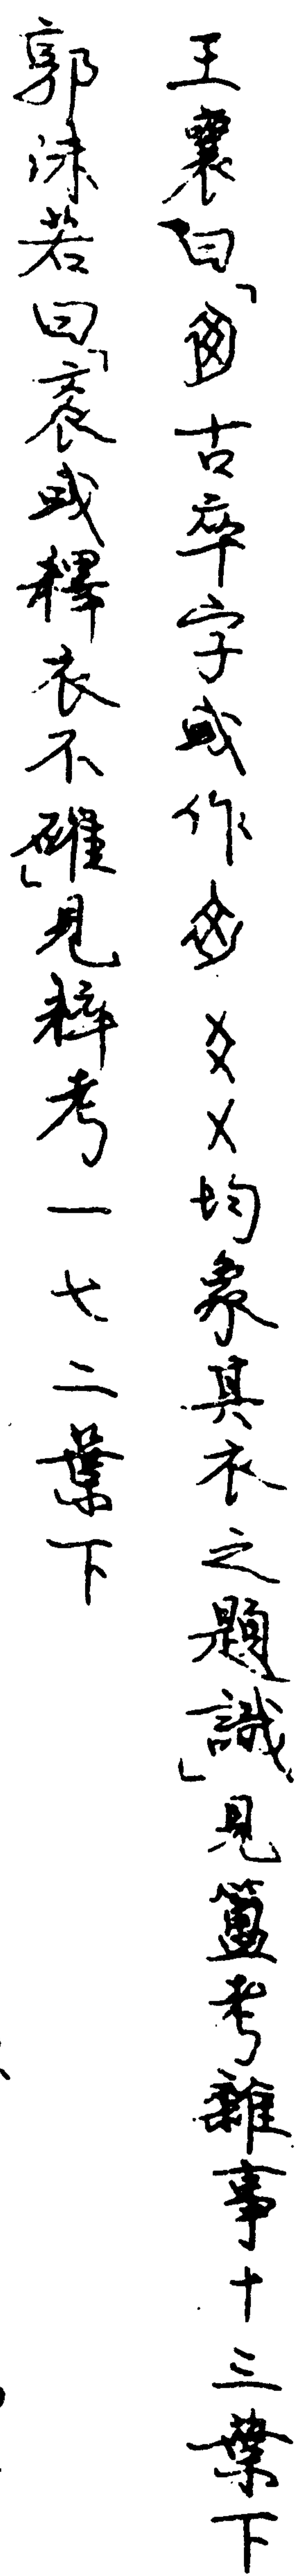 王襄曰「古卒字或作㐅㐅均象其衣之題識」見簠考雜事十三葉下
郭沫若曰「衮或釋衣不確」見粹考一七二葉下